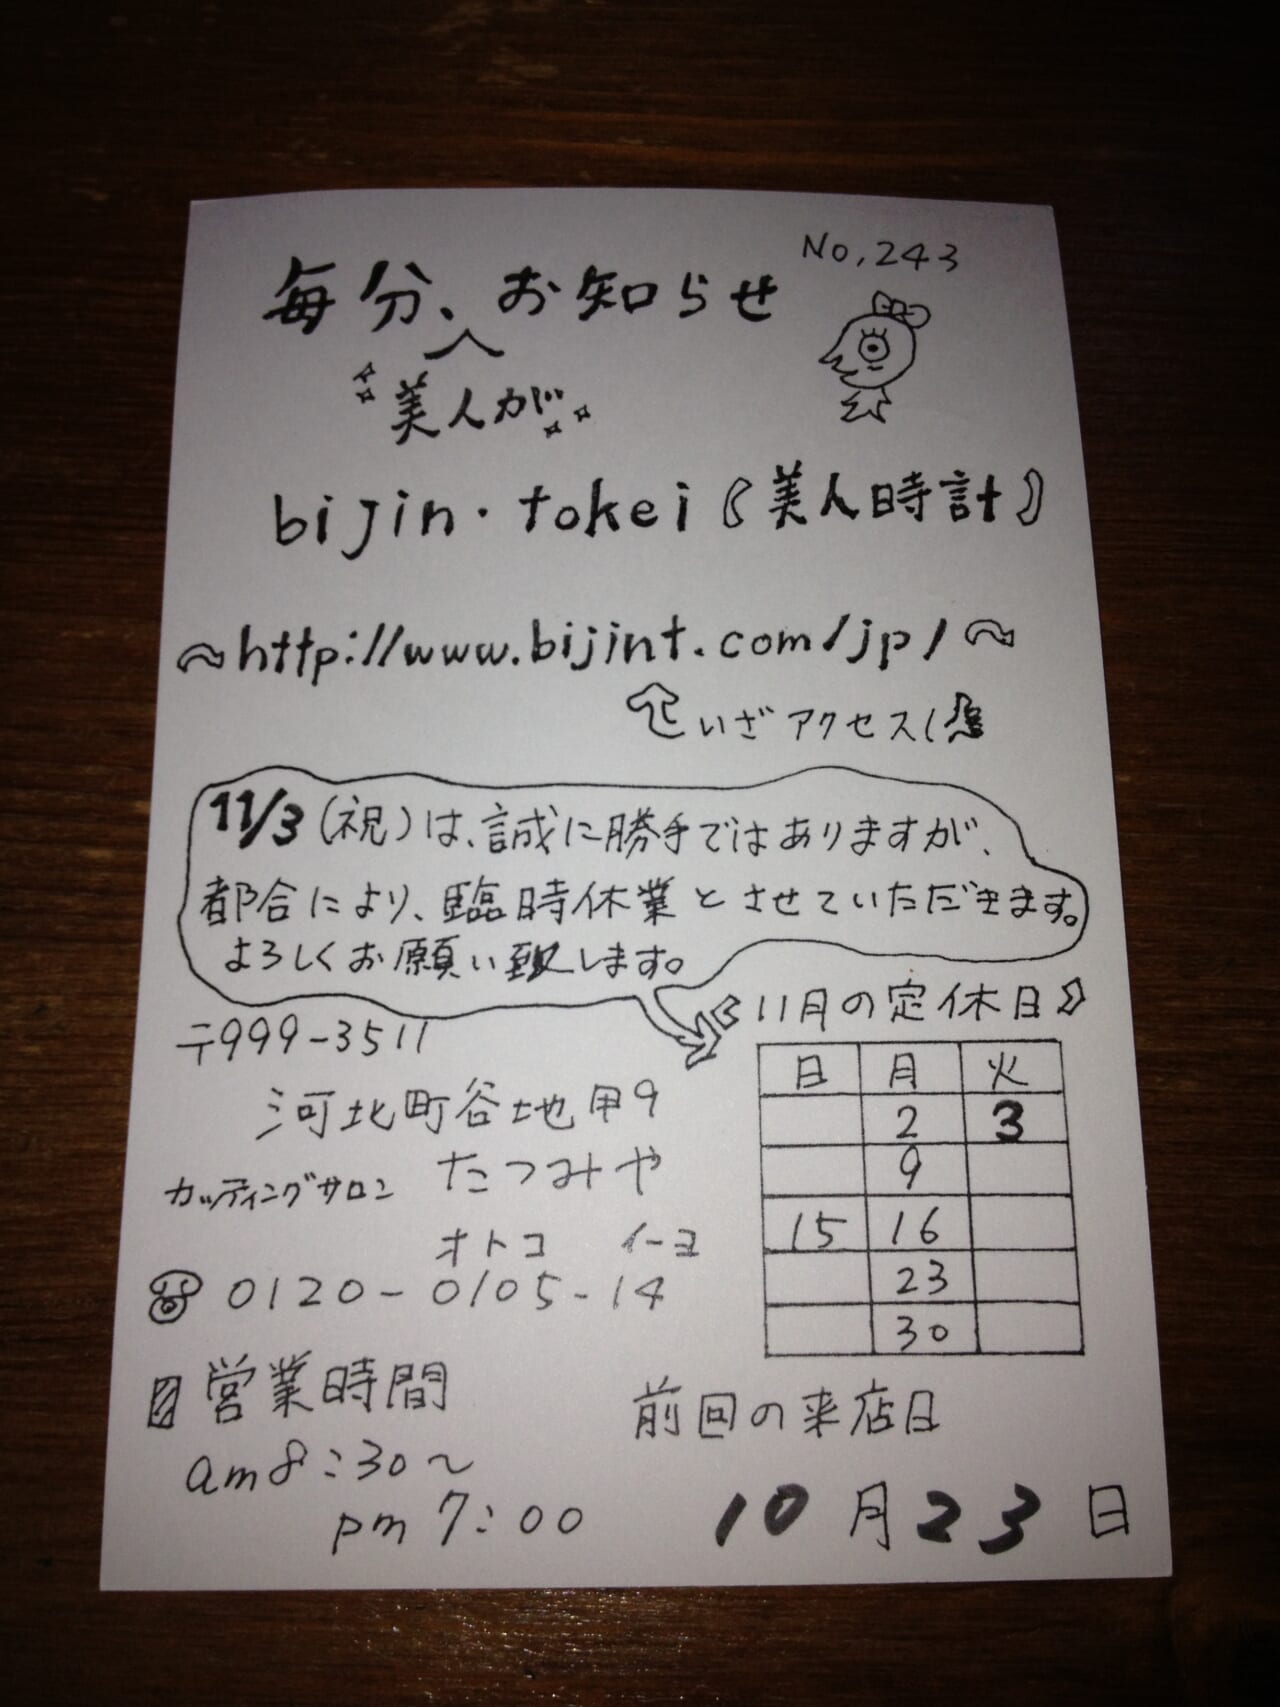 No,243
毎分、お知らせ
美人が
bijin・tokei《美人時計》
～http://www.bijint.com/jp/～
いざアクセス!
11/3(祝)は、誠に勝手ではありますが、
都合により、臨時休業とさせていただきます。
よろしくお願い致します。
〒999-3511
河北町谷地甲9
カッティングサロン たつみや
オトコ イーヨ
0120-0105-14
営業時間
am8:30～
pm7:00
《11月の定休日》
日 月 火
2 3
9
15 16
23
30
前回の来店日
10月23日